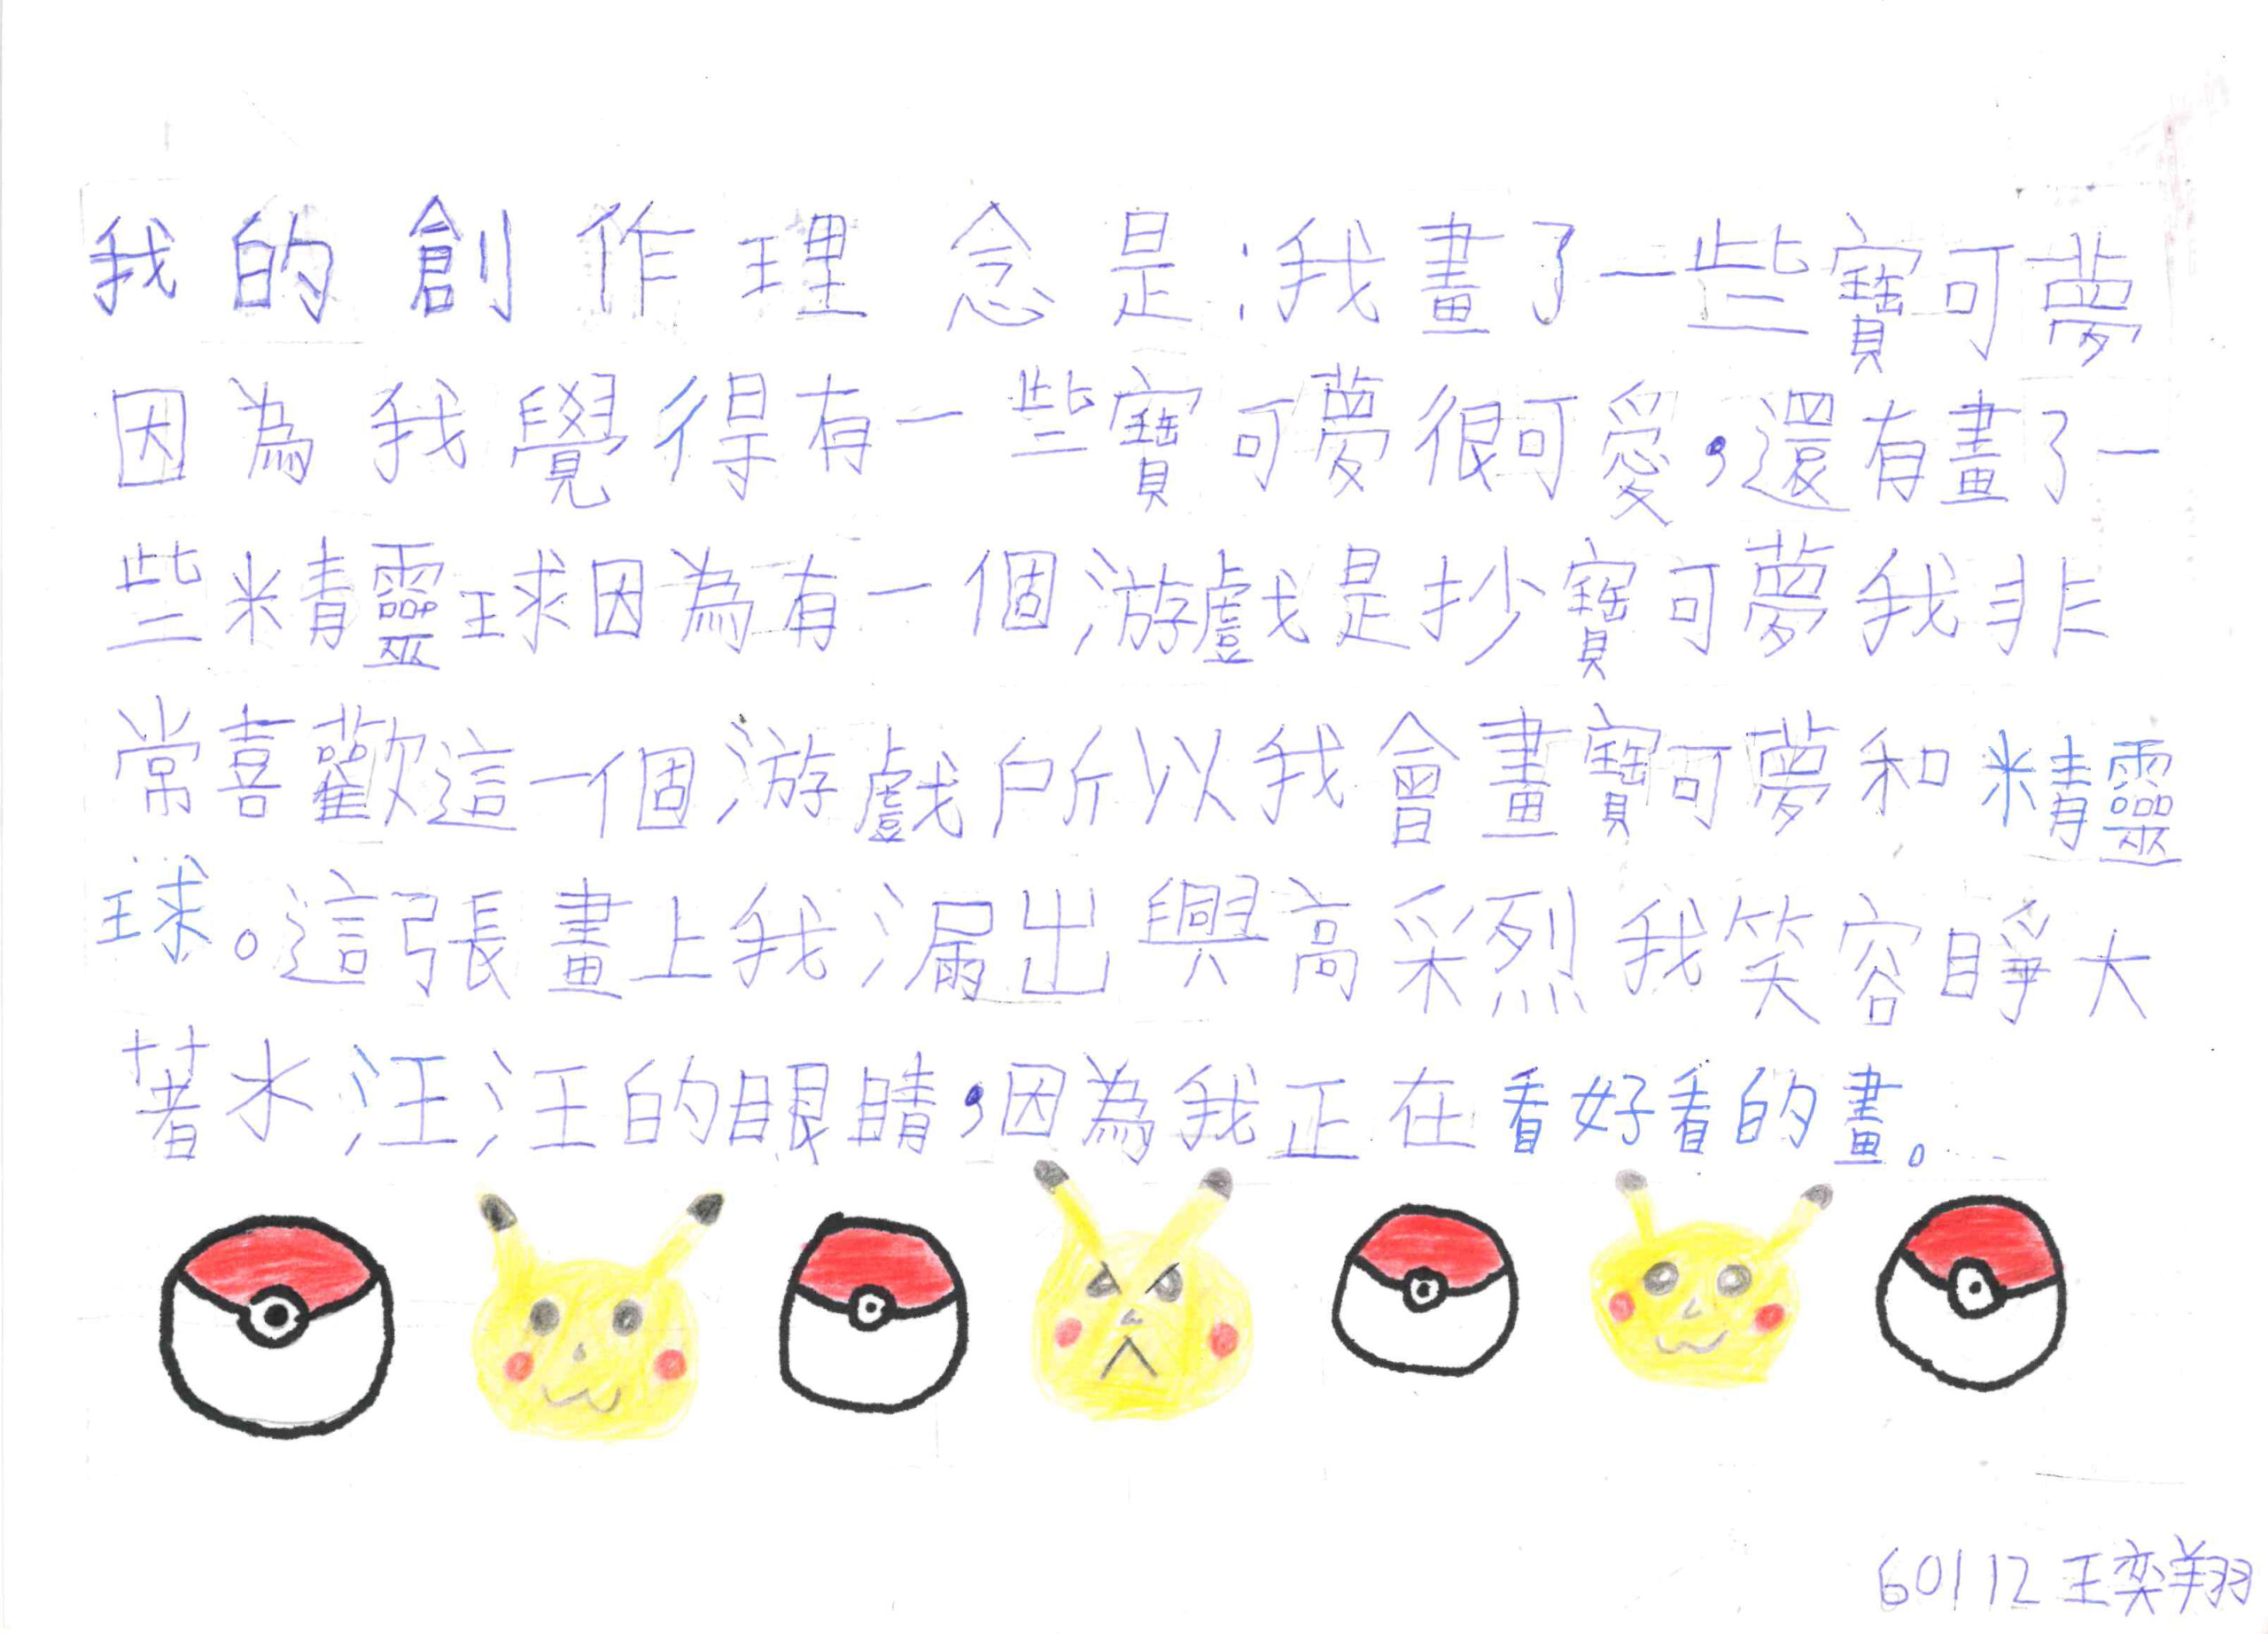 我的創作理念是:我畫了一些寶可夢
因為我覺得有一些寶可夢很可愛,還有畫了一
些精靈球因為有一個游戲是抄寶可夢我非
常喜歡這一個游戲所以我會畫寶可夢和精靈
球。這張畫上我漏出興高采烈我笑容睜大
著水汪汪的眼睛,因為我正在看好看的畫。
60112王奕翔